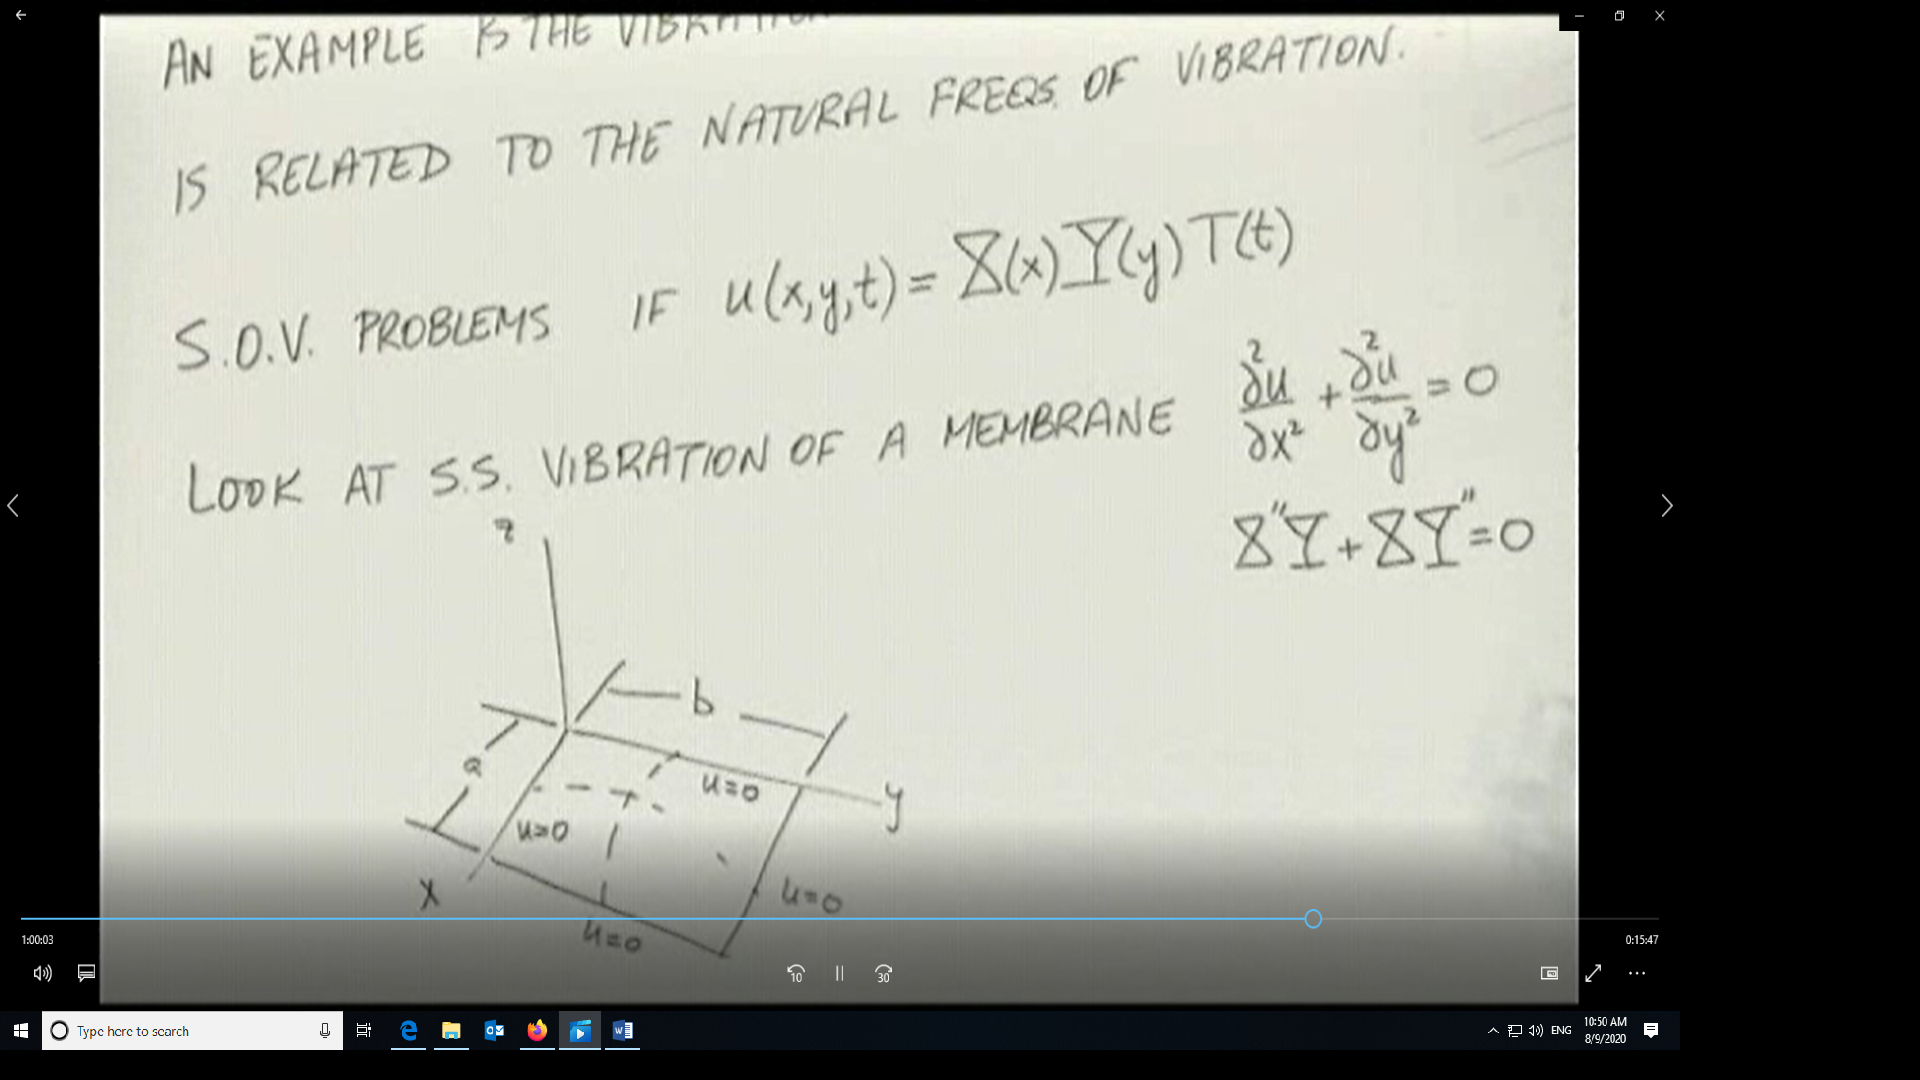 AN EXAMPLE IS THE VIBRATION
IS RELATED TO THE NATURAL FREQS. OF VIBRATION.
S.O.V. PROBLEMS IF u(x,y,t) = X(x)Y(y)T(t)
LOOK AT S.S. VIBRATION OF A MEMBRANE ∂²u/∂x² + ∂²u/∂y² = 0
X"Y + XY" = 0
z
b
a
u=0
y
u=0
x
u=0
u=0
1:00:03
0:15:47
10
30
Type here to search
ENG
10:50 AM
8/9/2020